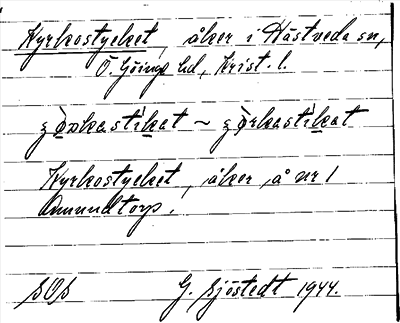 Kyrkostycket, åker i Hästveda sn,
Ö. Göinge hd, Krist. l.
Kyrkostycket, åker å nr 1
Amundtorp.
SOS G. Sjöstedt 1944.